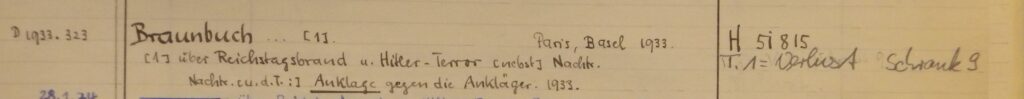 D 1933. 323 Braunbuch ... [1]. Paris, Basel 1933. H 5i 815
[1] über Reichstagsbrand u. Hitler-Terror [nebst] Nachtr. T. 1 = Verlust Schrank 9
Nachtr. [u. d. T.:] Anklage gegen die Ankläger. 1933.
28.1.34